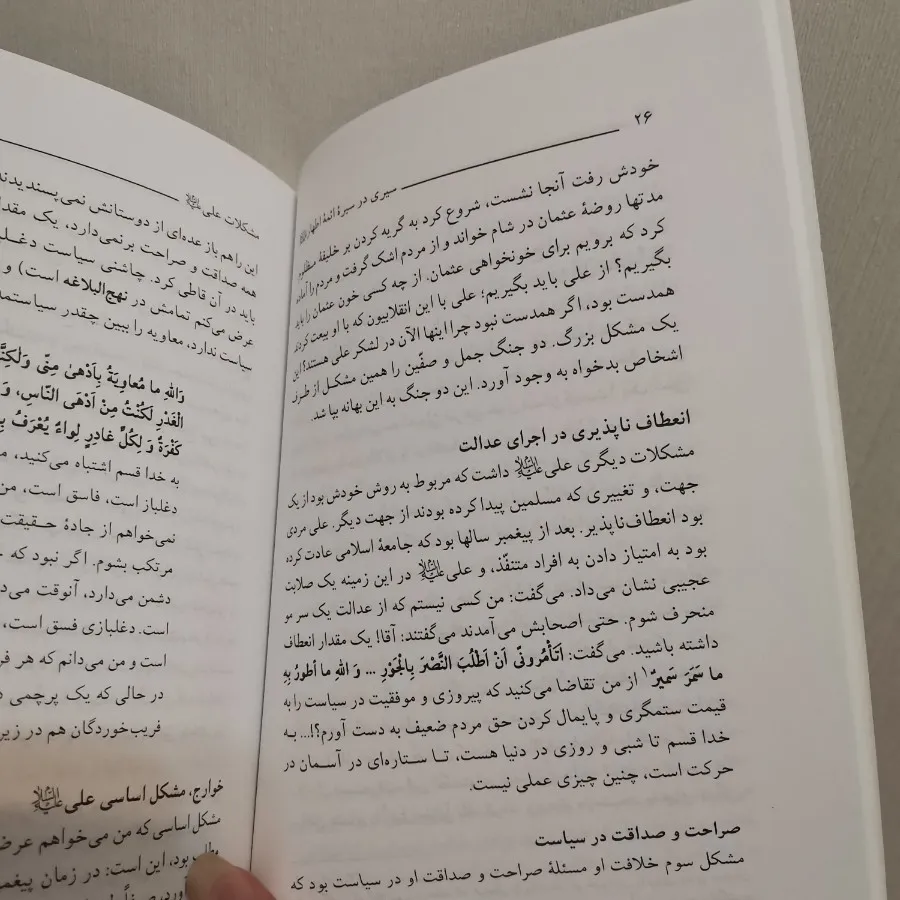 ۲۶
سیری در سیرهٔ ائمهٔ اطهار
خودش رفت آنجا نشست، شروع کرد به گریه کردن بر خلیفهٔ مظلوم.
مدتها روضهٔ عثمان در شام خواند و از مردم اشک گرفت و مردم را آماده
کرد که برویم برای خونخواهی عثمان. از چه کسی خون عثمان را باید
بگیریم؟ از علی باید بگیریم؛ علی با این انقلابیون که با او بیعت کردند
همدست بود، اگر همدست نبود چرا اینها الآن در لشکر علی هستند؟! این
یک مشکل بزرگ. دو جنگ جمل و صفّین را همین مشکل از طرف
اشخاص بدخواه به وجود آورد. این دو جنگ به این بهانه بپا شد.
انعطاف ناپذیری در اجرای عدالت
مشکلات دیگری علی علیه‌السلام داشت که مربوط به روش خودش بود از یک
جهت، و تغییری که مسلمین پیدا کرده بودند از جهت دیگر. علی مردی
بود انعطاف‌ناپذیر. بعد از پیغمبر سالها بود که جامعهٔ اسلامی عادت کرده
بود به امتیاز دادن به افراد متنفّذ، و علی علیه‌السلام در این زمینه یک صلابت
عجیبی نشان می‌داد. می‌گفت: من کسی نیستم که از عدالت یک سر مو
منحرف شوم. حتی اصحابش می‌آمدند می‌گفتند: آقا! یک مقدار انعطاف
داشته باشید. می‌گفت: أتَأْمُرونّی اَنْ اَطْلُبَ النَّصْرَ بِالْجَوْرِ ... وَ اللهِ ما اَطورُ بِهِ
ما سَمَرَ سَمیرٌ۱ از من تقاضا می‌کنید که پیروزی و موفقیت در سیاست را به
قیمت ستمگری و پایمال کردن حق مردم ضعیف به دست آورم؟!... به
خدا قسم تا شبی و روزی در دنیا هست، تا ستاره‌ای در آسمان در
حرکت است، چنین چیزی عملی نیست.
صراحت و صداقت در سیاست
مشکل سوم خلافت او مسئلهٔ صراحت و صداقت او در سیاست بود که
مشکلات علی علیه‌السلام
این را هم باز عده‌ای از دوستانش نمی‌پسندیدند
همه صداقت و صراحت برنمی‌دارد، یک مقدا
باید در آن قاطی کرد. چاشنی سیاست دغل
عرض می‌کنم تمامش در نهج‌البلاغه است) و
سیاست ندارد، معاویه را ببین چقدر سیاستمد
وَاللهِ ما مُعاوِیَةُ بِاَدْهیٰ مِنّی وَلٰکِنَّ
الْغَدْرِ لَکُنْتُ مِنْ اَدْهَی النّاسِ، وَ
کَفْرَةٌ وَ لِکُلِّ غادِرٍ لِواءٌ یُعْرَفُ بِ
به خدا قسم اشتباه می‌کنید، م
دغلباز است، فاسق است، من
نمی‌خواهم از جادهٔ حقیقت
مرتکب بشوم. اگر نبود که خ
دشمن می‌دارد، آنوقت می‌د
است. دغلبازی فسق است،
است و من می‌دانم که هر فر
در حالی که یک پرچمی د
فریب‌خوردگان هم در زیر
خوارج، مشکل اساسی علی علیه‌السلام
مشکل اساسی که من می‌خواهم عرض
بود، این است: در زمان پیغم